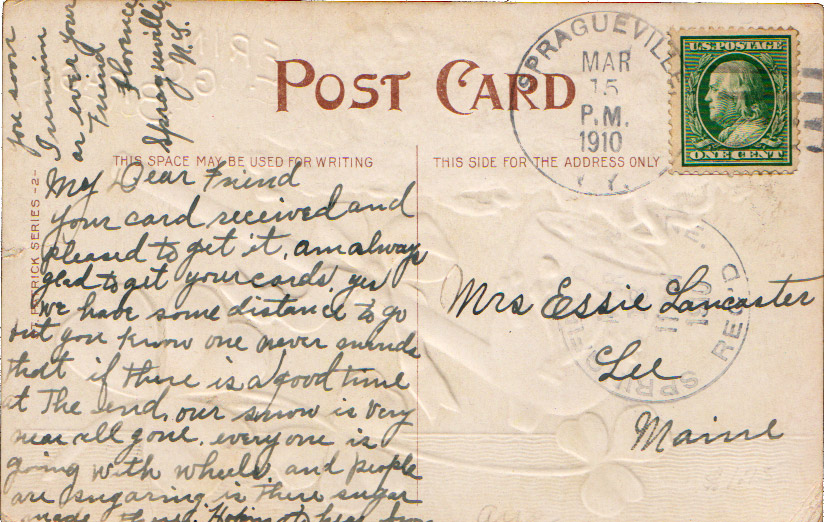 POST CARD
THIS SPACE MAY BE USED FOR WRITING
THIS SIDE FOR THE ADDRESS ONLY
SPRAGUEVILLE
MAR
15
P.M.
1910
U.S. POSTAGE
ONE CENT
My Dear Friend
Your card received and
pleased to get it, am always
glad to get your cards, yes
we have some distance to go
but you know one never minds
that if there is a good time
at the end, our snow is very
near all gone. everyone is
going with wheels and people
are sugaring is there sugar
made there. Hoping to hear from
you soon
I remain
as ever your
Friend
Florence
Spragueville
N.Y.
Mrs Essie Lancaster
Lee
Maine
REC'D
SERIES -2-